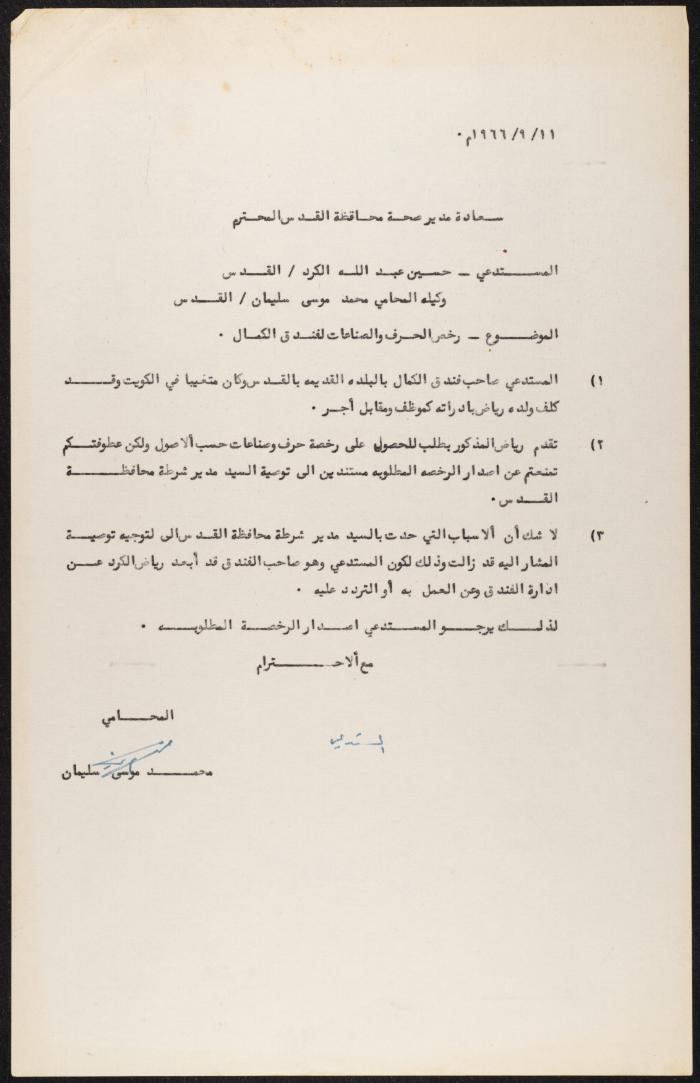 ١١/٩/١٩٦٦م ٠
سعادة مدير صحة محافظة القدس المحترم
المستدعي - حسين عبد الله الكرد / القدس
وكيله المحامي محمد موسى سليمان / القدس
الموضوع - رخص الحرف والصناعات لفندق الكمال ٠
١) المستدعي صاحب فندق الكمال بالبلده القديمه بالقدس وكان متغيبا في الكويت وقد
كلف ولده رياض بادراته كموظف ومقابل أجر ٠
٢) تقدم رياض المذكور بطلب للحصول على رخصة حرف وصناعات حسب ألاصول ولكن عطوفتكم
تمنعتم عن اصدار الرخصه المطلوبه مستندين الى توصية السيد مدير شرطة محافظة
القدس ٠
٣) لا شك أن ألاسباب التي حدت بالسيد مدير شرطة محافظة القدس الى لتوجيه توصية
المشار اليه قد زالت وذلك لكون المستدعي وهو صاحب الفندق قد أبعد رياض الكرد عن
ادارة الفندق وعن العمل به أو التردد عليه ٠
لذلك يرجو المستدعي اصدار الرخصة المطلوبه ٠
مع ألاحترام
المحامي
المستدعي
محمد موسى سليمان